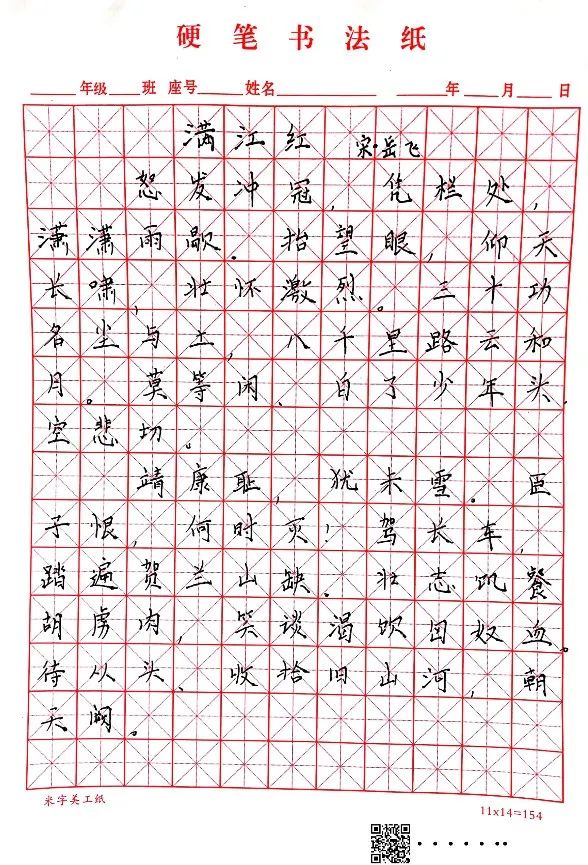 硬笔书法纸
年级 班 座号 姓名 年 月 日
满江红 宋·岳飞
怒发冲冠,凭栏处,
潇潇雨歇.抬望眼,仰天
长啸,壮怀激烈。三十功
名尘与土,八千里路云和
月。莫等闲、白了少年头.
空悲切。
靖康耻,犹未雪。臣
子恨,何时灭!驾长车,
踏遍贺兰山缺.壮志饥餐
胡虏肉,笑谈渴饮匈奴血。
待从头、收拾旧山河,朝
天阙。
米字美工纸
11x14=154